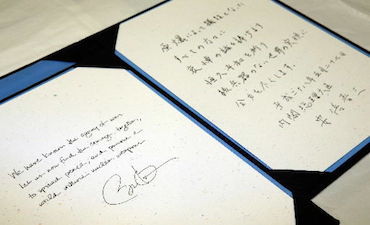 We have known the agony of war.
Let us now find the courage, together,
to spread peace, and pursue a
world without nuclear weapons.
原爆によって犠牲となった
すべての方々に
哀悼の誠を捧げます。
恒久平和を祈り
核兵器のない世界の実現に
全力を尽くします。
平成二十八年五月二十七日
内閣総理大臣 安倍晋三